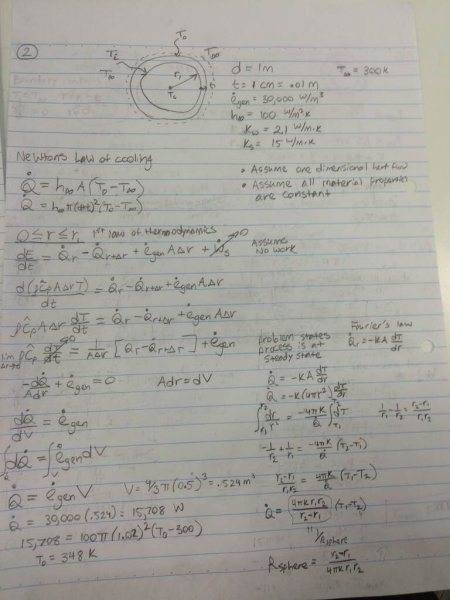 ②
T₀
T_E
T∞
T∞
r₁
T₀
d = 1m
T∞ = 300K
t = 1 cm = .01 m
ė_gen = 30,000 W/m³
h∞ = 100 W/m²K
K_w = 2.1 W/m·K
K_s = 15 W/m·K
Newton's Law of cooling
Q̇ = h∞ A (T₀ - T∞)
Q̇ = h∞ π(d+t)² (T₀ - T∞)
• Assume one dimensional heat flow
• Assume all material properties are constant
0 ≤ r ≤ r₁ 1st law of thermodynamics
dE/dt = Q̇r - Q̇r+Δr + ė_gen AΔr + Ẇs → 0
Assume
NO WORK
d(ρĈp AΔrT)/dt = Q̇r - Q̇r+Δr + ė_gen AΔr
ρĈp AΔr dT/dt = Q̇r - Q̇r+Δr + ė_gen AΔr
lim Δr→0 ρĈp dT/dt → 0 = 1/AΔr [Q̇r - Q̇r+Δr] + ė_gen
problem states
process is at
steady state
-dQ̇/Adr + ė_gen = 0 Adr = dV
dQ̇/dV = ė_gen
∫dQ̇ = ∫ė_gen dV
Q̇ = ė_gen V V = 4/3 π (0.5)³ = .524 m³
Q̇ = 30,000 (.524) = 15,708 W
15,708 = 100π(1.02)² (T₀ - 300)
T₀ = 348 K
Fourier's law
Q̇r = -KA dT/dr
Q̇ = -KA dT/dr
Q̇ = -K(4πr²) dT/dr
∫ dr/r² = -4πK/Q̇ ∫ dT
1/r₁ - 1/r₂ = r₂-r₁/r₁r₂
-1/r₂ + 1/r₁ = -4πK/Q̇ (T₂-T₁)
r₂-r₁/r₁r₂ = 4πK/Q̇ (T₁-T₂)
Q̇ = (4πK r₁r₂/r₂-r₁) (T₁-T₂)
1/Rsphere
Rsphere = r₂-r₁/4πK r₁r₂